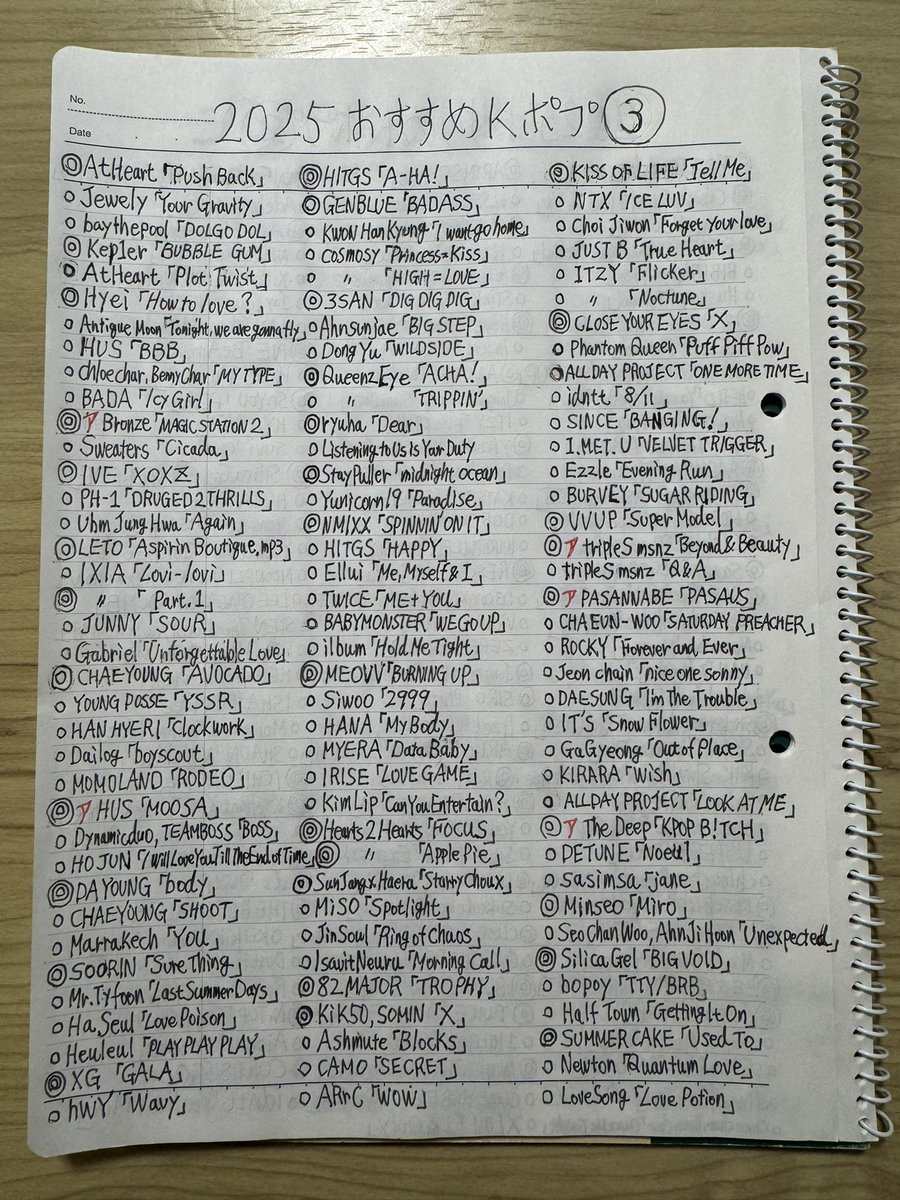 No.
Date
2025 おすすめKポップ③
◎AtHeart「Push Back」
○Jewely「Your Gravity」
○baythepool「DOLGO DOL」
◎Kep1er「BUBBLE GUM」
○AtHeart「Plot Twist」
◎Hyei「How to love?」
○Antique Moon「Tonight, we are gonna fly」
○HUS「BBB」
○chloechar, BemyChar「MY TYPE」
○BADA「Icy Girl」
◎Bronze「MAGIC STATION 2」
○Sweaters「Cicada」
◎IVE「XOXZ」
○PH-1「DRUGED 2 THRILLS」
○Uhm Jung Hwa「Again」
◎LETO「Aspirin Boutique, mp3」
○IXIA「Lovi-lovi」
◎〃「Part.1」
○JUNNY「SOUR」
○Gabriel「Unforgettable Love」
◎CHAEYOUNG「AVOCADO」
○YOUNG POSSE「YSSR」
○HAN HYERI「Clockwork」
○Dailog「boyscout」
○MOMOLAND「RODEO」
◎HUS「MOOSA」
○Dynamicduo, TEAMBOSS「BOSS」
○HOJUN「I Will Love You Till The End of Time」
◎DAYOUNG「body」
○CHAEYOUNG「SHOOT」
○Marrakech「YOU」
◎SOORIN「Sure Thing」
○Mr.Tyfoon「Last Summer Days」
○Ha Seul「Love Poison」
○Heuleul「PLAY PLAY PLAY」
◎XG「GALA」
○hWY「Wavy」
◎HITGS「A-HA!」
◎GENBLUE「BADASS」
○KWON Han Kyung「I want go home」
○cosmosy「Princess=Kiss」
○〃「HIGH=LOVE」
◎3SAN「DIG DIG DIG」
○Ahnsunjae「BIG STEP」
○Dong Yu「WILDSIDE」
◎Queenz Eye「ACHA!」
○〃「TRIPPIN'」
◎ryuha「Dear」
○Listening to Us Is Your Duty
◎StayPuller「midnight ocean」
○Yunicorn19「Paradise」
◎NMIXX「SPINNIN' ON IT」
○HITGS「HAPPY」
○Ellui「Me, Myself & I」
○TWICE「ME+YOU」
○BABYMONSTER「WE GO UP」
○ilbum「Hold Me Tight」
◎MEOVV「BURNING UP」
○Siwoo「2999」
○HANA「My Body」
○MYERA「Data Baby」
○IRISE「LOVE GAME」
○Kim Lip「Can You Entertain?」
◎Hearts2Hearts「FOCUS」
◎〃「Apple Pie」
◎SunJangxHaera「Starry Choux」
○MiSO「Spotlight」
○JinSoul「Ring of Chaos」
○IsawitNeuru「Morning Call」
◎82MAJOR「TROPHY」
◎KiK5O, SOMIN「X」
○Ashmute「Blocks」
○CAMO「SECRET」
○ARrC「WOW」
◎KISS OF LIFE「Tell Me」
○NTX「ICE LUV」
○Choi Jiwon「Forget Your love」
○JUST B「True Heart」
○ITZY「Flicker」
○〃「Noctune」
◎CLOSE YOUR EYES「X」
○Phantom Queen「Puff Piff Pow」
○ALLDAY PROJECT「ONE MORE TIME」
○idntt「8/11」
○SINCE「BANGING!」
○I.MET. U「VELVET TRIGGER」
○Ezzle「Evening Run」
○BURVEY「SUGAR RIDING」
◎VVUP「Super Model」
◎tripleS msnz「Beyond & Beauty」
○tripleS msnz「Q&A」
◎PASANNABE「PASAUS」
○CHAEUN-WOO「SATURDAY PREACHER」
○ROCKY「Forever and Ever」
○Jeon chain「nice one sonny」
○DAESUNG「I'm The Trouble」
○IT'S「Snow Flower」
○GaGyeong「Out of Place」
○KIRARA「Wish」
○ALLDAY PROJECT「LOOK AT ME」
◎The Deep「KPOP B!TCH」
○DETUNE「Noeul」
○sasimsa「jane」
◎Minseo「Miro」
○Seo Chan Woo, Ahn Ji Hoon「Unexpected」
◎Silica Gel「BIG VOID」
○bopoy「TTY/BRB」
○Half Town「Getting It On」
◎SUMMER CAKE「Used To」
○Newton「Quantum Love」
○LoveSong「Love Potion」